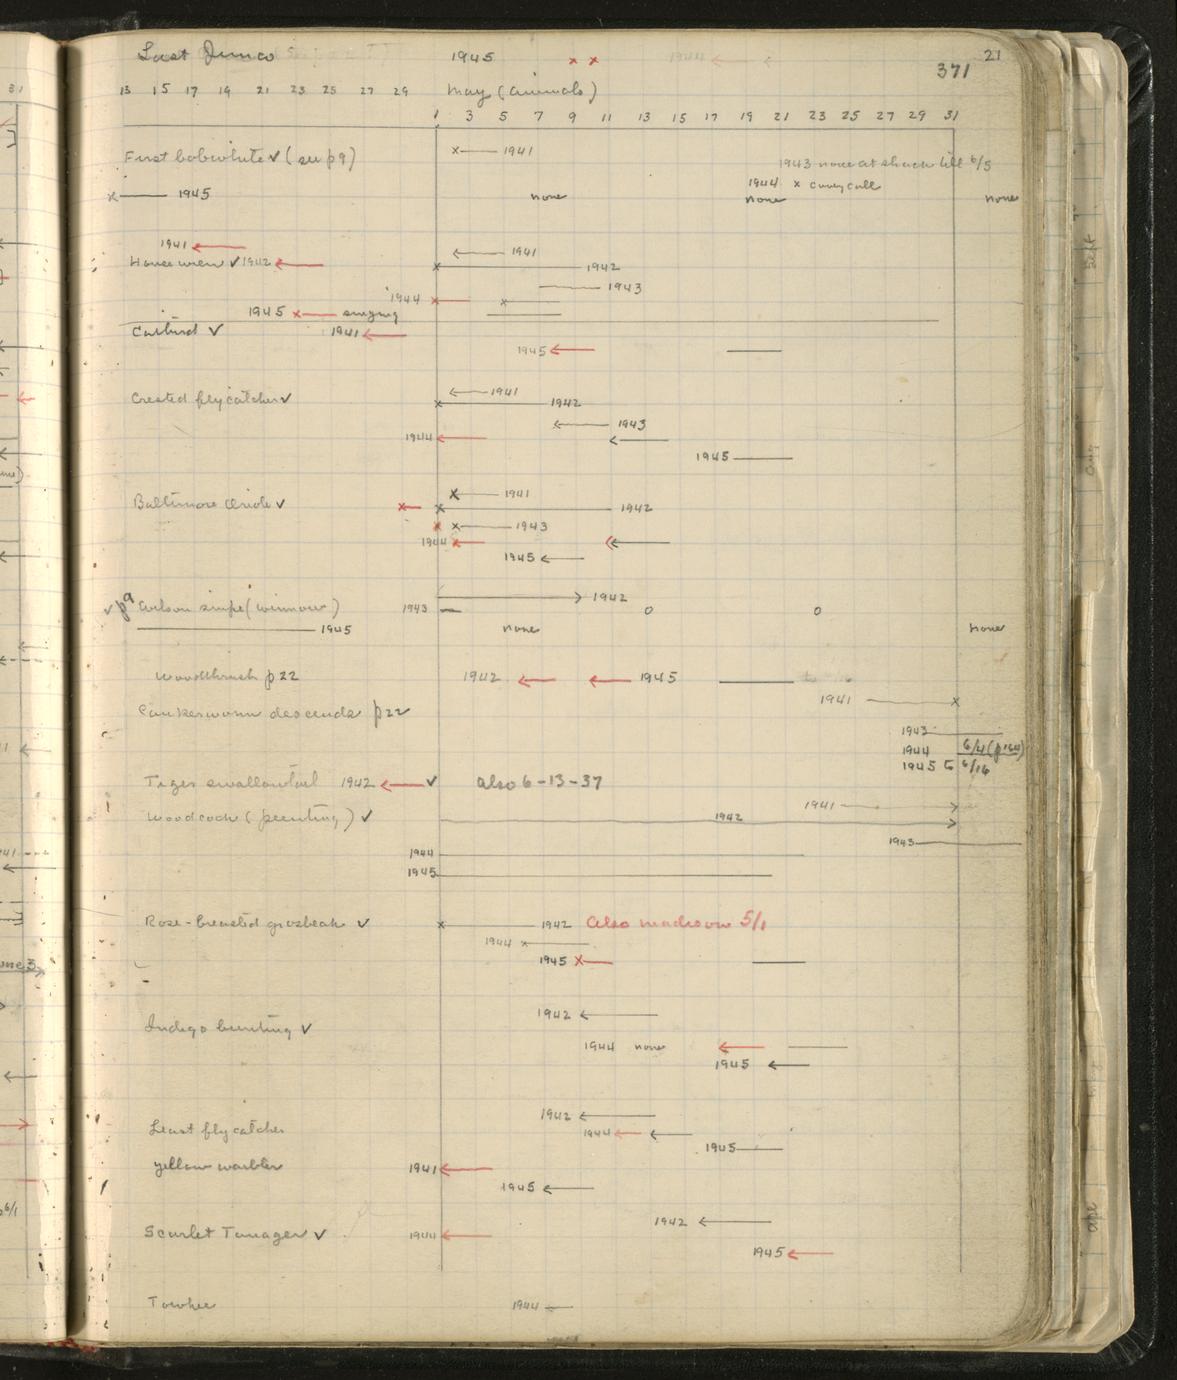 Last Junco 1945 x x 1944 21
371
13 15 17 19 21 23 25 27 29 May (animals)
1 3 5 7 9 11 13 15 17 19 21 23 25 27 29 31
First bobwhite ✓ (see p9) x 1941
1943 none at shack till 6/5
1944 x covey call
x 1945 none none none
1941
1941
House wren ✓ 1942 x 1942
1943
1944 x x
1945 x singing
Catbird ✓ 1941
1945
1941
Crested flycatcher ✓ x 1942
1943
1944
1945
x 1941
Baltimore Oriole ✓ x x 1942
x x 1943
1944
1945
1942
✓ p9 Wilson snipe (winnow) 1943 o o
1945 none none
Woodthrush p22 1942 1945
1941 x
Cankerworm descends p22
1943
1944 6/4 (p164)
1945 to 6/16
Tiger swallowtail 1942 ✓ also 6-13-37
1941
Woodcock (peenting) ✓ 1942
1943
1944
1945
Rose-breasted grosbeak ✓ x 1942 Also Madison 5/1
1944 x
1945 x
1942
Indigo bunting ✓
1944 none
1945
1942
Least flycatcher 1944
1945
Yellow warbler 1941
1945
1942
Scarlet Tanager ✓ 1944
1945
Towhee 1944